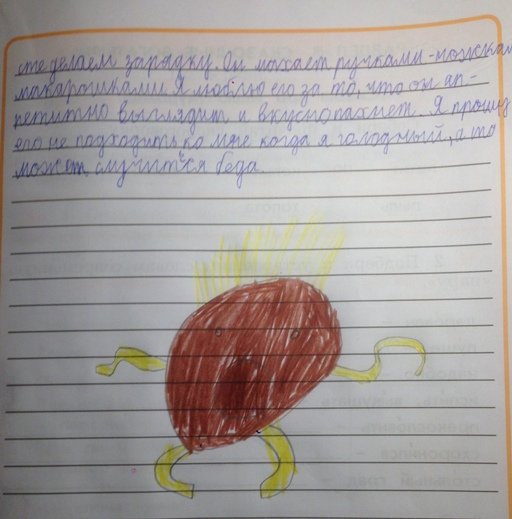 сте делаем зарядку. Он махает ручками-ножками
макарошками. Я люблю его за то, что он ап-
петитно выглядит и вкусно пахнет. Я прошу
его не подходить ко мне когда я голодный, а то
может случится беда.